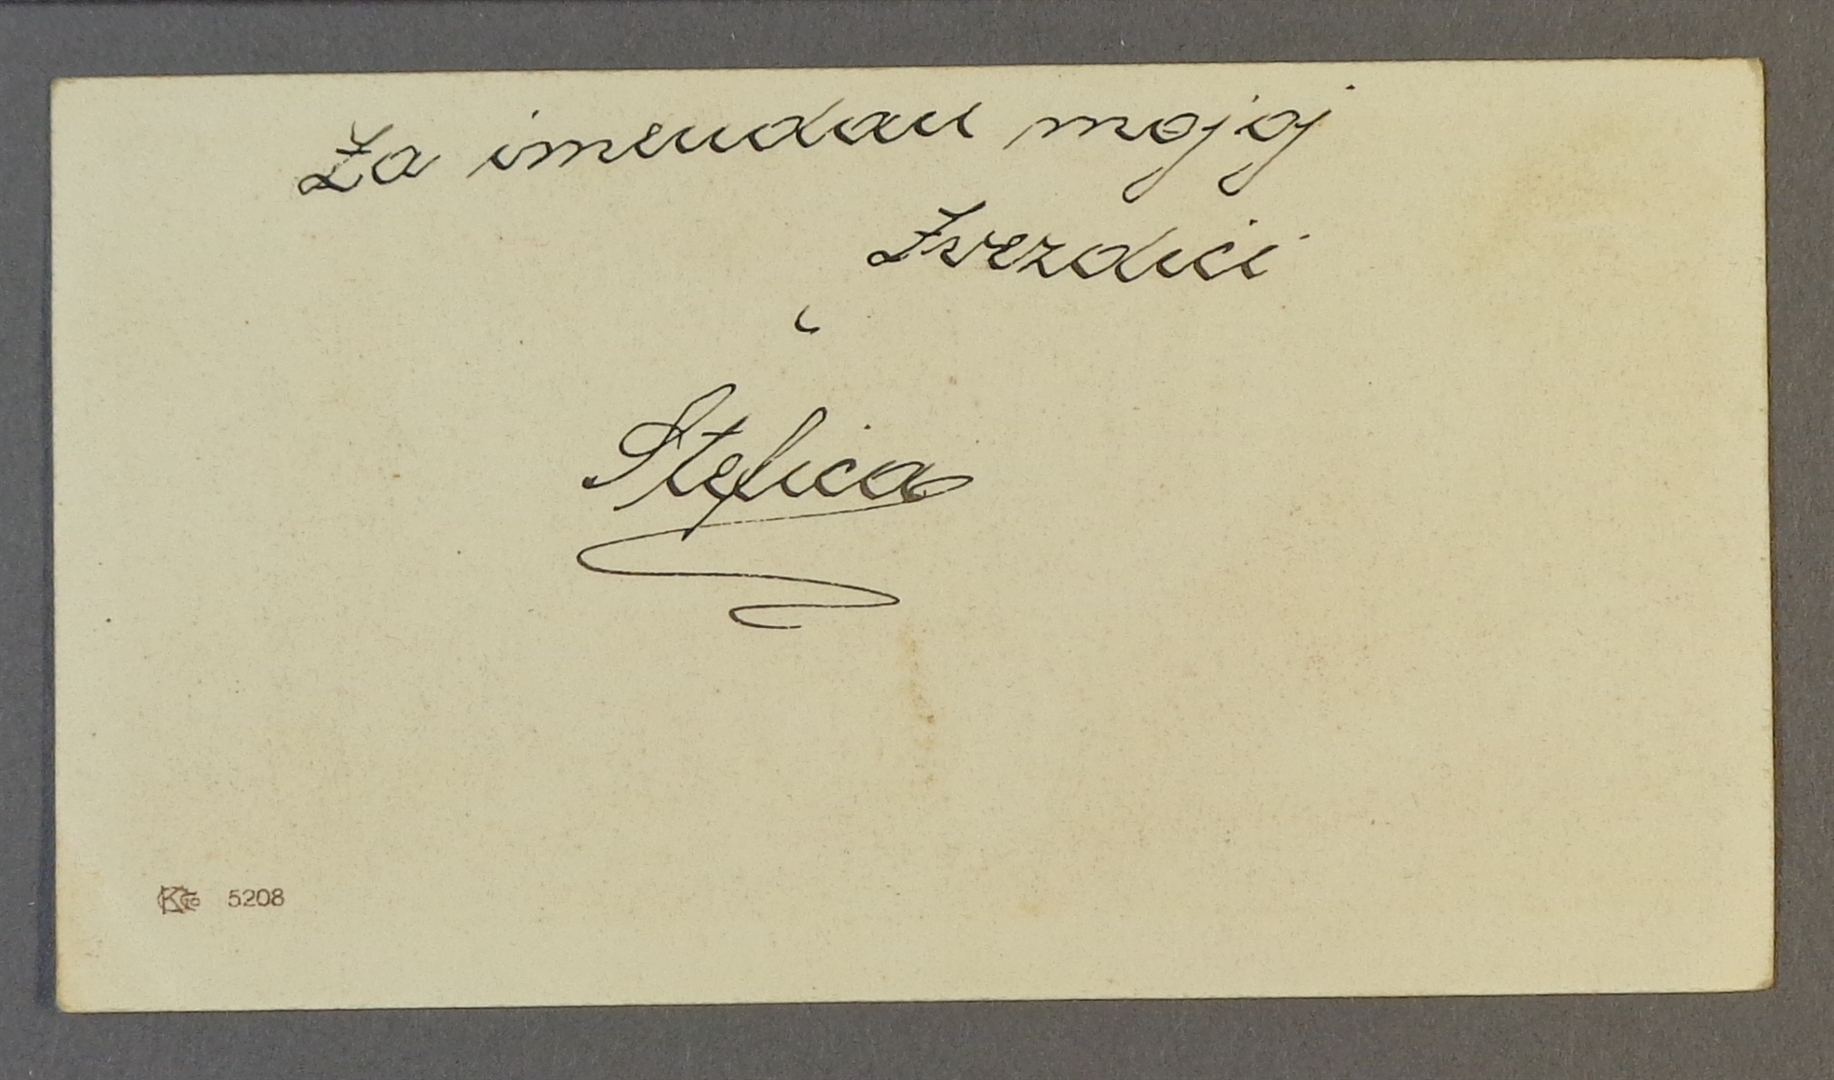 Za imendan mojoj
Zvezdici
Štefica
5208